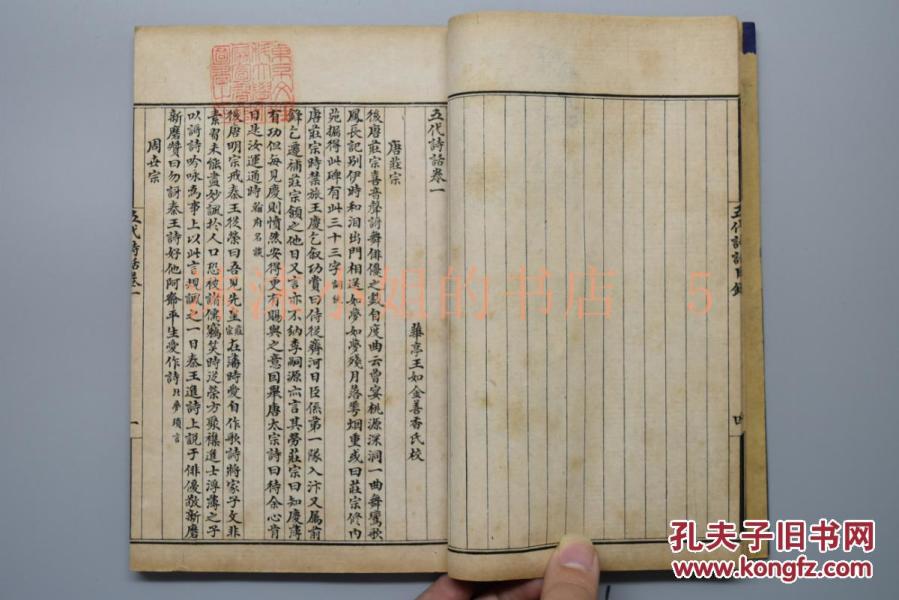 五代詩話卷一
華亭王如金善香氏校
唐莊宗
後唐莊宗喜音聲詩舞俳優之戲自度曲云曾宴桃源深洞一曲舞鸞歌
鳳長記別伊時和淚出門相送如夢如夢殘月落花烟重或曰莊宗修內
苑掘得此碑有此三十三字詞統
唐莊宗時禁旅王慶乞叙功賞曰侍從齊河日臣係第一隊入汴又屬前
鋒乞遷補莊宗領之他日又言亦不納李嗣源亦言其勞莊宗曰知慶薄
有功但每見慶則憤然安得更有賜與之意因舉唐太宗詩曰待余心肯
日是汝運通時翰府名談
後唐明宗戒秦王從榮曰吾見先皇莊宗在藩時愛自作歌詩將家子文非
素習未能盡妙諷於人口恐被諸儒竊笑時從榮方聚襍進士浮薄之子
以謌詩吟咏為事上以此言規諷之一日秦王進詩上說于俳優敬新磨
新磨贊曰勿訝秦王詩好他阿爺平生愛作詩北夢瑣言
周世宗
五代詩話卷一
一
五代詩話目錄
四
沫沫小姐的书店 5
孔夫子旧书网
www.kongfz.com